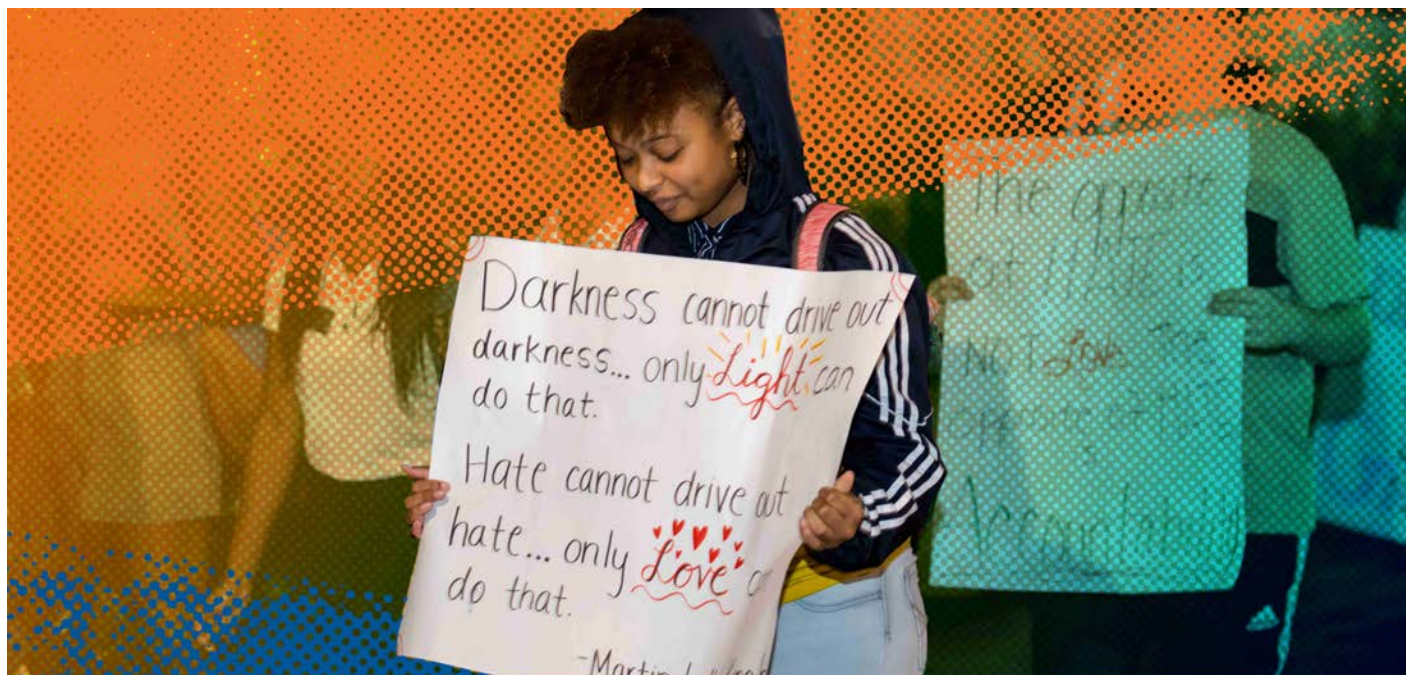 Darkness cannot drive out
darkness... only Light can
do that.
Hate cannot drive out
hate... only Love
do that.
-Martin
The opposite
of
NOT Love